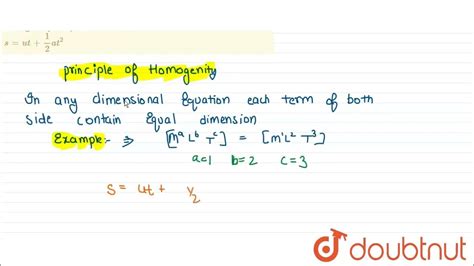 s = ut + 1/2 at²
principle of Homogenity
In any dimensional Equation each term of both
side contain Equal dimension
Example:- ⇒ [Mᵃ Lᵇ Tᶜ] = [M¹L² T³]
a=1 b=2 c=3
S = ut + 1/2
doubtnut